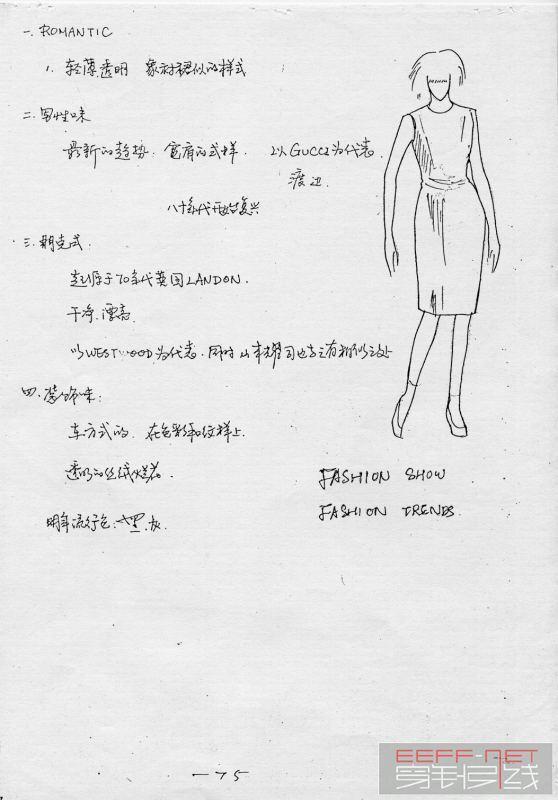 一. ROMANTIC
1. 轻薄透明 象衬裙似的样式
二. 男性味
最新的趋势. 宽肩的式样. 以GUCCI为代表.
渡边.
八十年代开始复兴
三. 朋克式.
起源于70年代英国LANDON.
干净. 漂亮.
以WESTWOOD为代表. 同时山本耀司也有相似之处
四. 装饰味:
东方式的. 在色彩和纹样上.
透明的丝绒
明年流行色: 灰.
FASHION SHOW
FASHION TRENDS.
—75
EEFF-NET